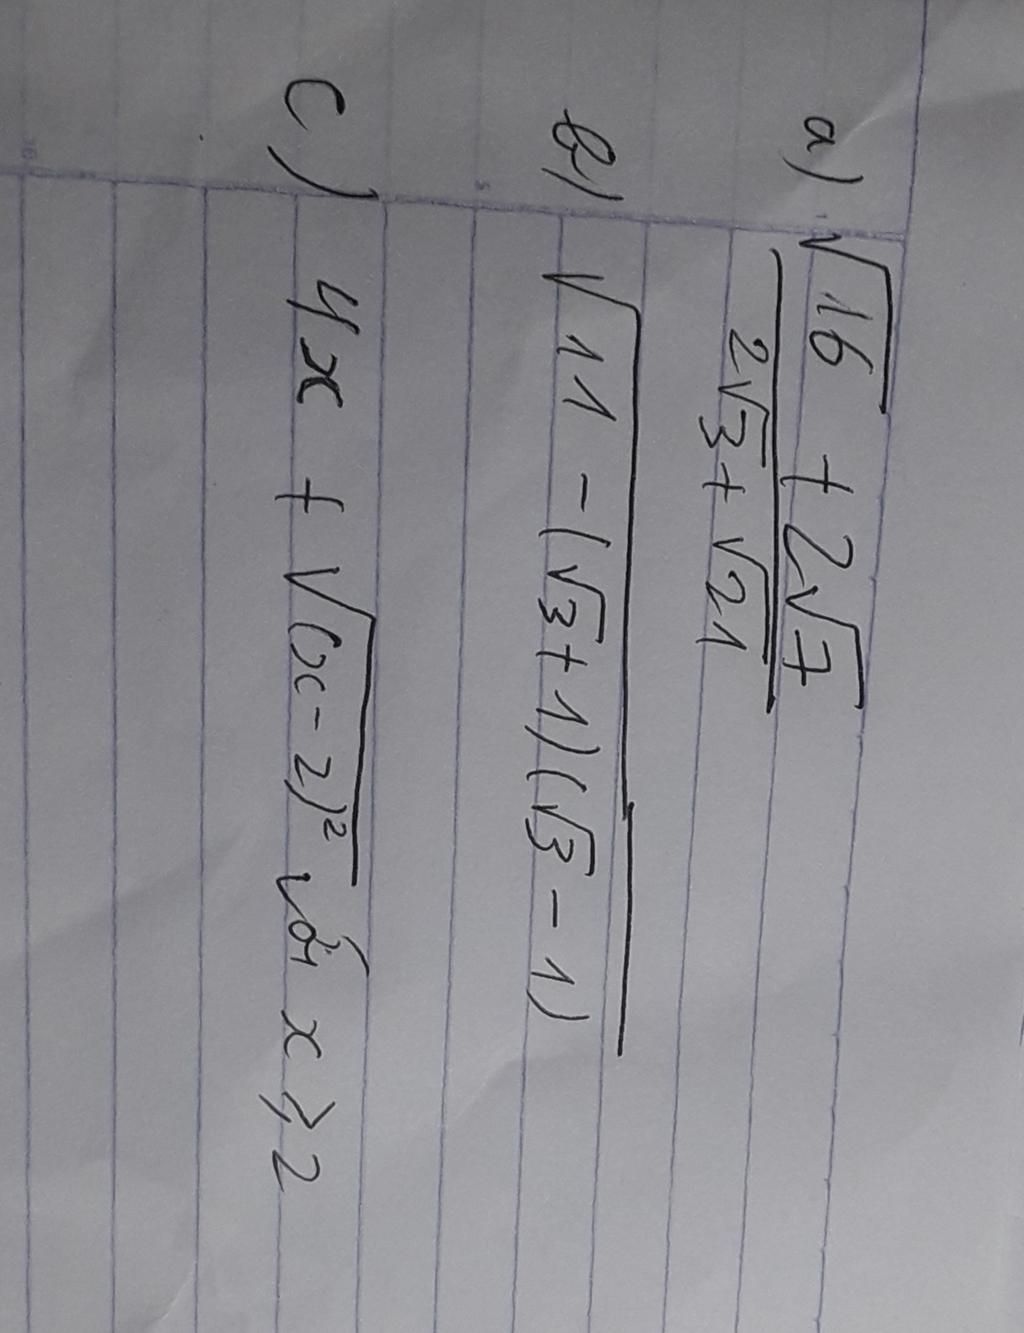 a) √16 + 2√7
2√3 + √21
b) √11 - (√3 + 1)(√3 - 1)
c) 4x + √(x - 2)² với x ⩾ 2